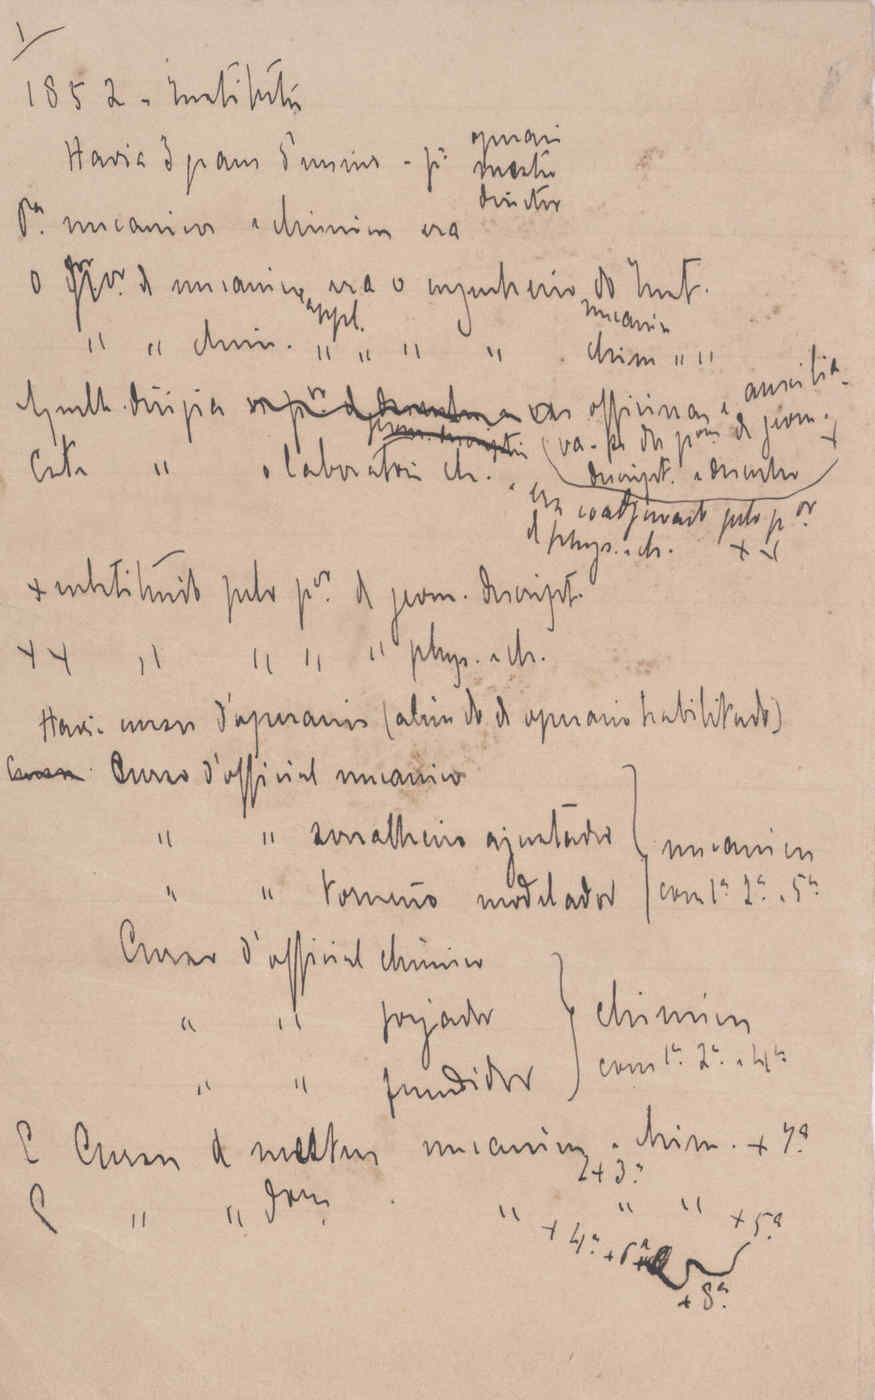 1
1852 - Instituto
Havia 3 graus d'ensino - pª operari
mestre
director
Pª. mecanicos e chimicos era
O Prof.or de mecanica era o engenheiro do Inst.
" " chim. appl. " " " " . chim " "
mecanico
Aquelle dirigia as officinas e auxilia-
va-se do p.or de geom.
descript. e desenho +
Este " o laboratorio ch. e
era coadjuvado pelo p.or
d phys. e ch. + +
+ substituido pelo p.or de geom. descript.
++ " " " " phys. e ch.
Havia cursos d'operarios (além do d operario habilitado)
Curso d'official mecanico
" " serralheiro ajustador
" " torneiro modelador
mecanicos
com 1ª 2ª e 5ª
Curso d'official chimico
" " forjador
" " fundidor
chimicos
com 1ª 2ª e 4ª
E Cursos de mestres mecanicos e chim. + 7ª
2 + 3ª
E " " " " " + 5ª
+ 4ª + 6ª
+ 8ª